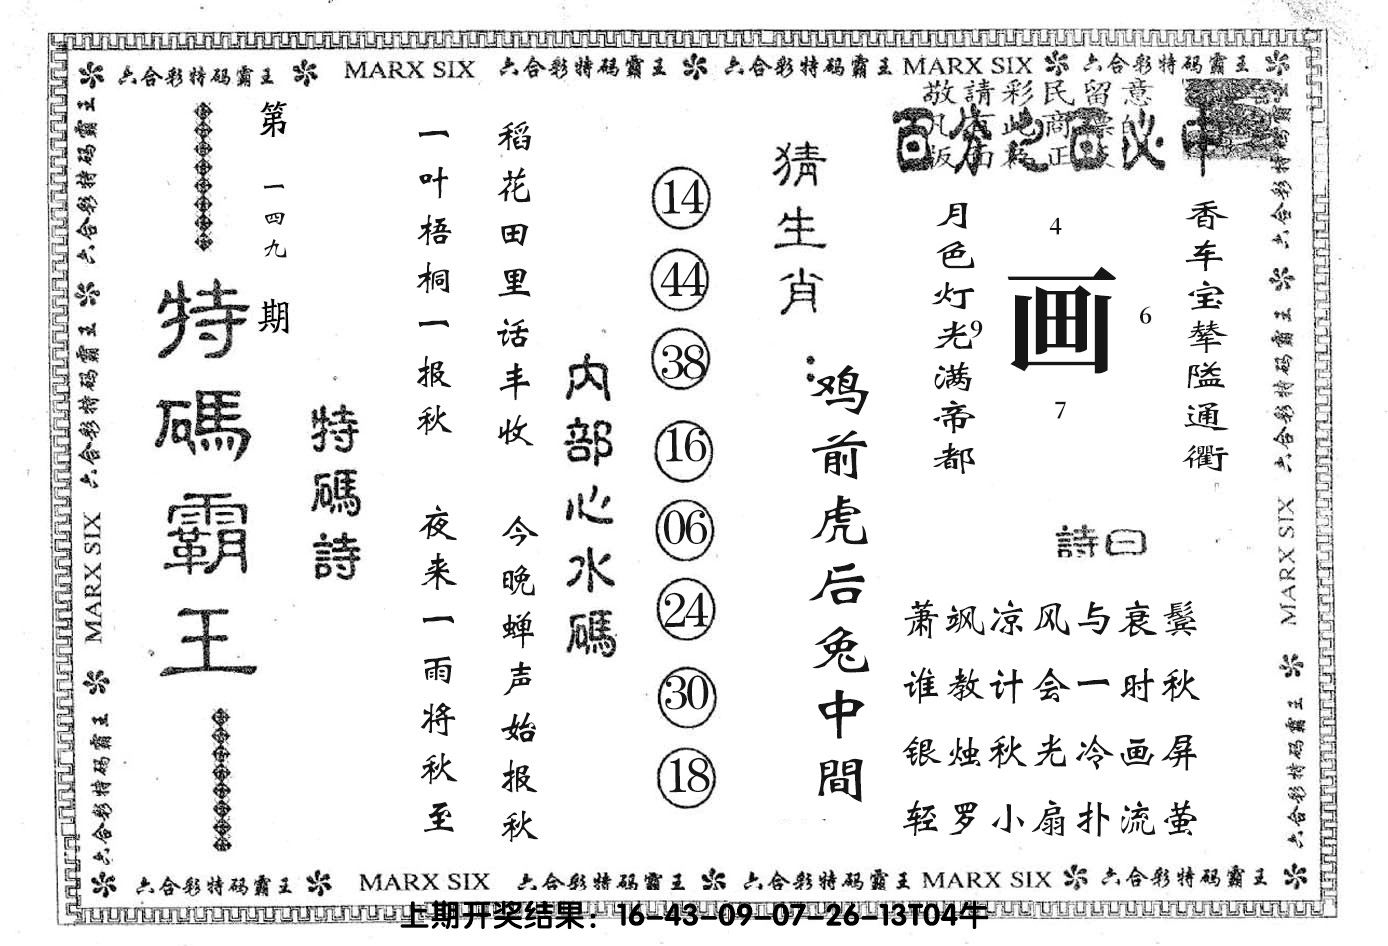 六合彩特码霸王 MARX SIX 六合彩特码霸王 六合彩特码霸王 MARX SIX 六合彩特码霸王
六合彩特码霸王 六合彩特码霸王 MARX SIX 六合彩特码霸王
第一四九期
特碼霸王
特碼詩
一叶梧桐一报秋 夜来一雨将秋至
稻花田里话丰收 今晚蝉声始报秋
内部心水碼
14
44
38
16
06
24
30
18
猜生肖:
鸡前虎后兔中間
敬請彩民留意
百分之百必中
月色灯光满帝都
4
画
9
6
7
香车宝辇隘通衢
詩曰
萧飒凉风与衰鬓
谁教计会一时秋
银烛秋光冷画屏
轻罗小扇扑流萤
六合彩特码霸王 六合彩特码霸王 MARX SIX 六合彩特码霸王
六合彩特码霸王 MARX SIX 六合彩特码霸王 六合彩特码霸王 MARX SIX 六合彩特码霸王
上期开奖结果：16-43-09-07-26-13T04牛